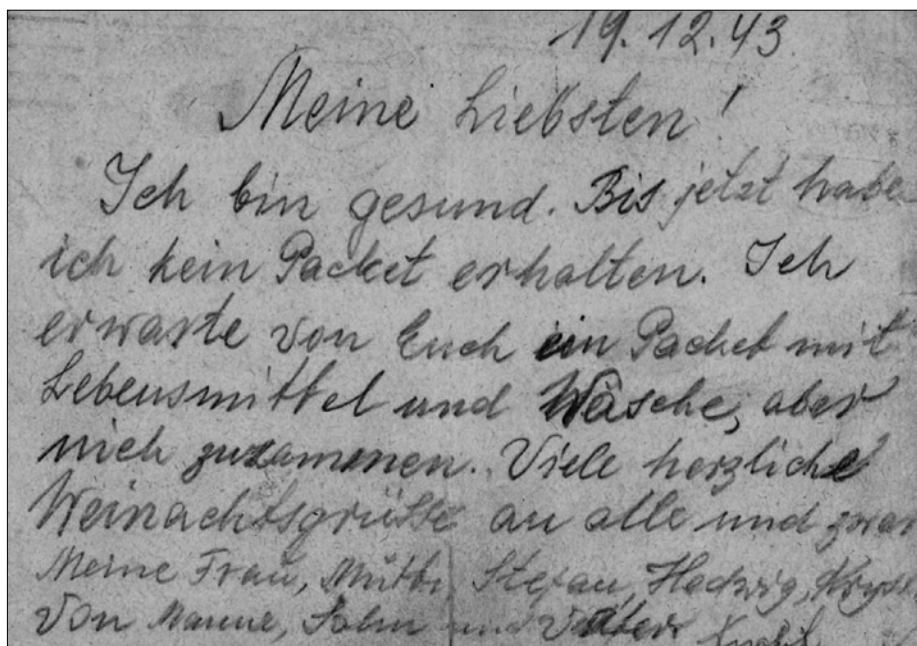 19.12.43
Meine Liebsten!
Ich bin gesund. Bis jetzt habe
ich kein Packet erhalten. Ich
erwarte von Euch ein Packet mit
Lebensmittel und Wäsche, aber
nich zuzamenen. Viele herzliche
Weinachtsgrüsse an alle und zwar
Meine Frau, Stefan, Hedwig,
von Manne, Sohn und Vater